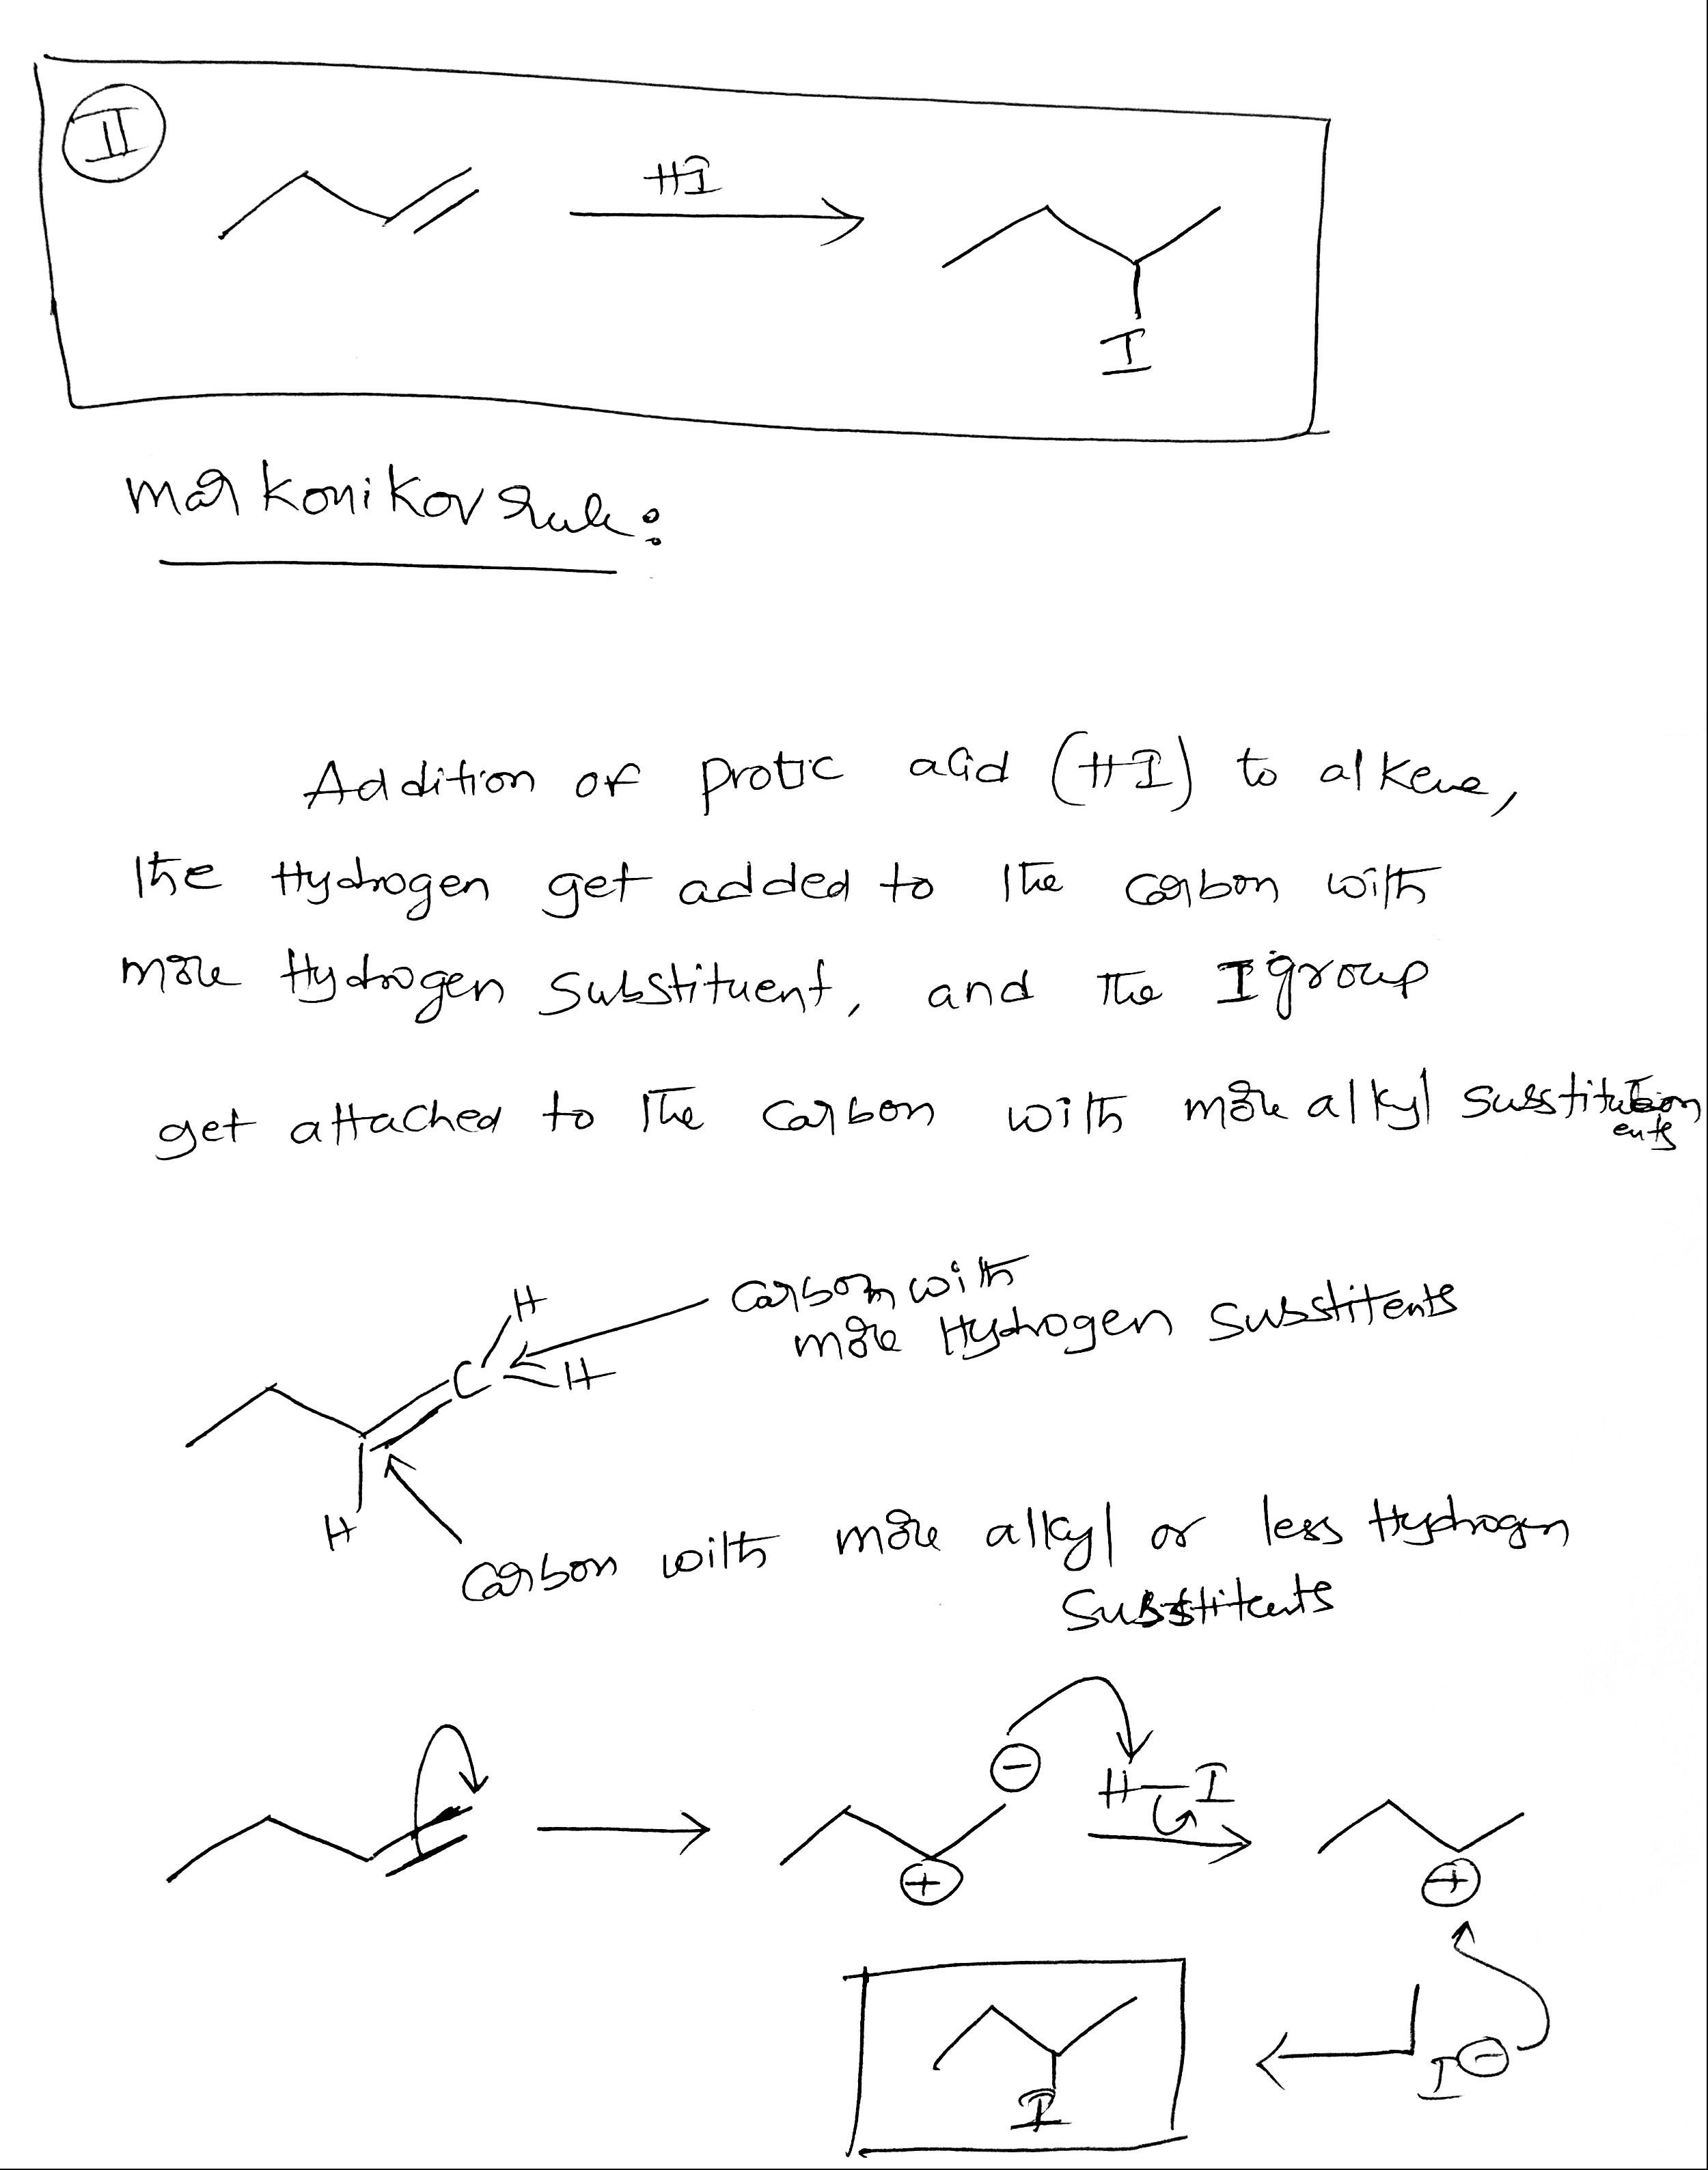 II
HI
I
markonikov rule:
Addition of protic acid (HI) to alkene,
the Hydrogen get added to the carbon with
more Hydrogen substituent, and the I group
get attached to the carbon with more alkyl substitution
ents
H
Carbon with
more Hydrogen substitents
C
H
H
carbon with more alkyl or less Hydrogen
substitents
⊖
H-I
⊕
⊕
I⊖
I